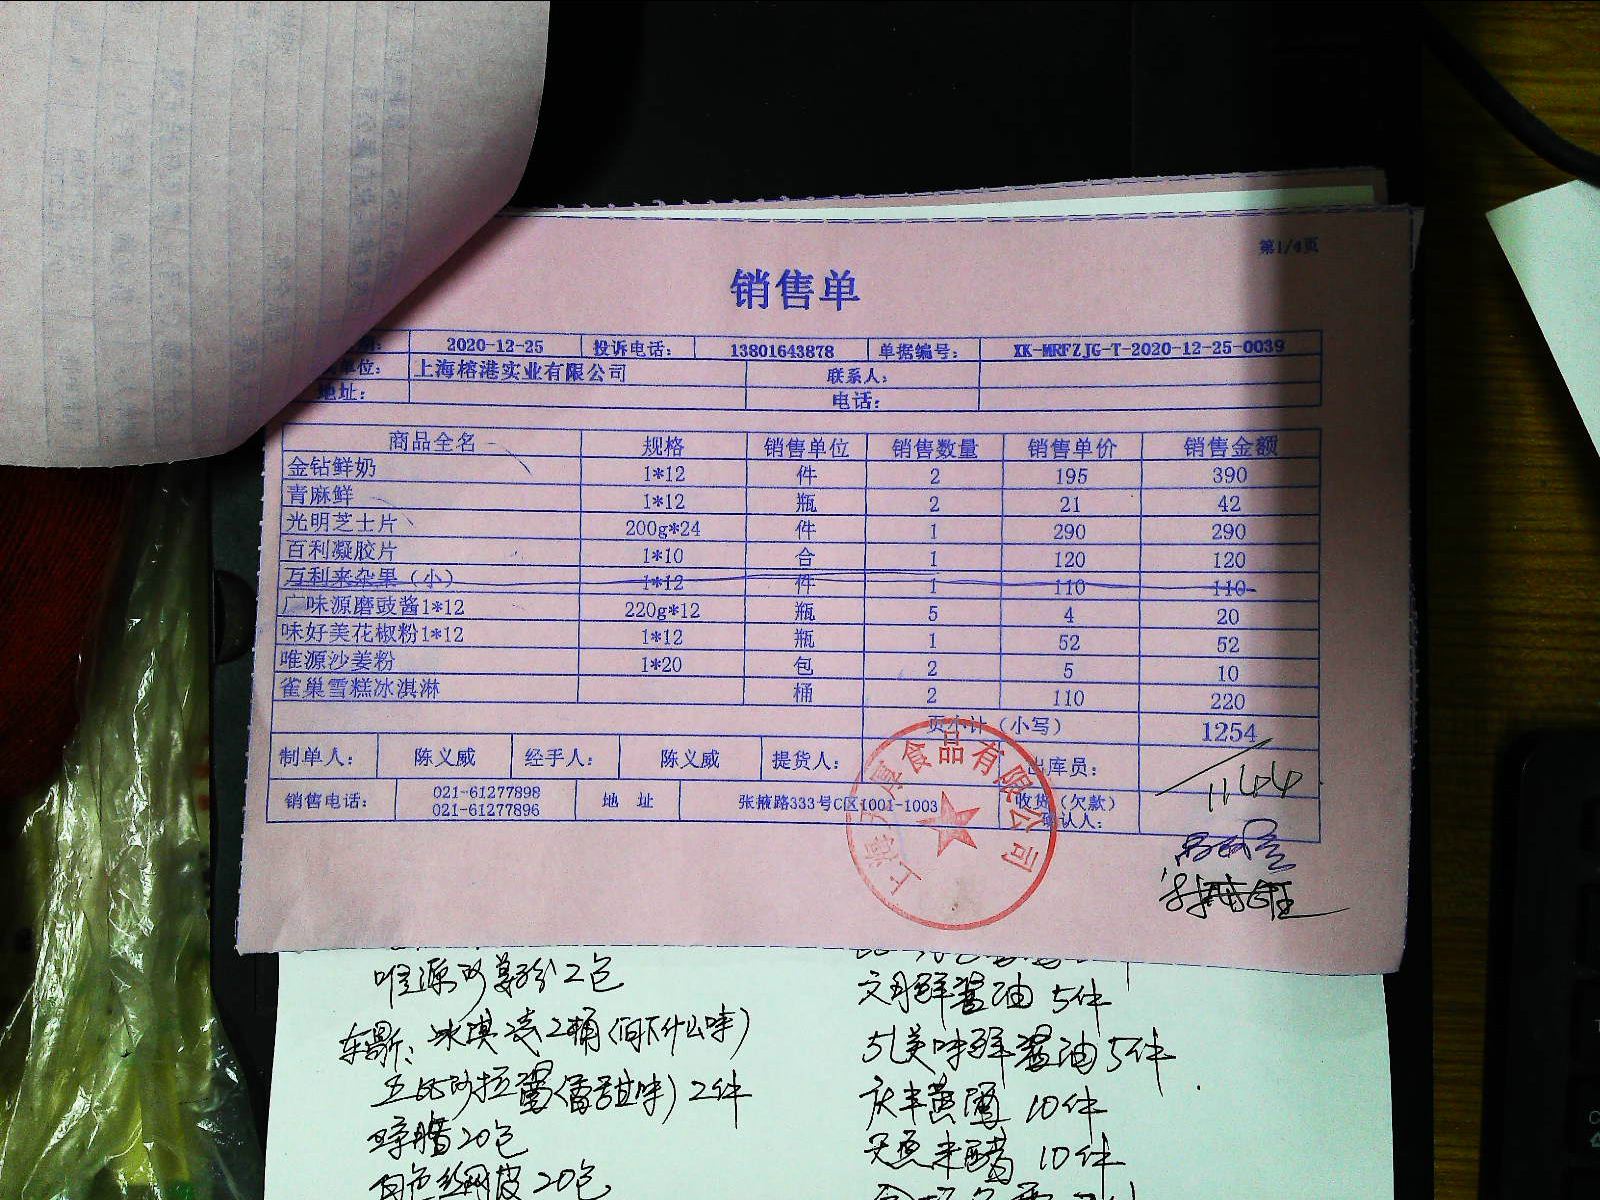 第1/4页
销售单
2020-12-25 投诉电话: 13801643878 单据编号: XK-MRFZJG-T-2020-12-25-0039
单位: 上海榕港实业有限公司 联系人:
地址: 电话:
商品全名 规格 销售单位 销售数量 销售单价 销售金额
金钻鲜奶 1*12 件 2 195 390
青麻鲜 1*12 瓶 2 21 42
光明芝士片 200g*24 件 1 290 290
百利凝胶片 1*10 合 1 120 120
互利来杂果（小） 1*12 件 1 110 110
广味源磨豉酱1*12 220g*12 瓶 5 4 20
味好美花椒粉1*12 1*12 瓶 1 52 52
唯源沙姜粉 1*20 包 2 5 10
雀巢雪糕冰淇淋 桶 2 110 220
页小计（小写） 1254
制单人: 陈义威 经手人: 陈义威 提货人: 出库员:
1144
销售电话: 021-61277898 地 址 张掖路333号C区1001-1003 收货（欠款）
021-61277896 确认人:
食品有限公司
上海
唯源沙姜粉2包
文月鲜酱油 5件
冰淇淋2桶(问下什么味)
美味鲜酱油5件
沙拉酱(香甜味)2件
10件
20包
天鱼米醋 10件
20包